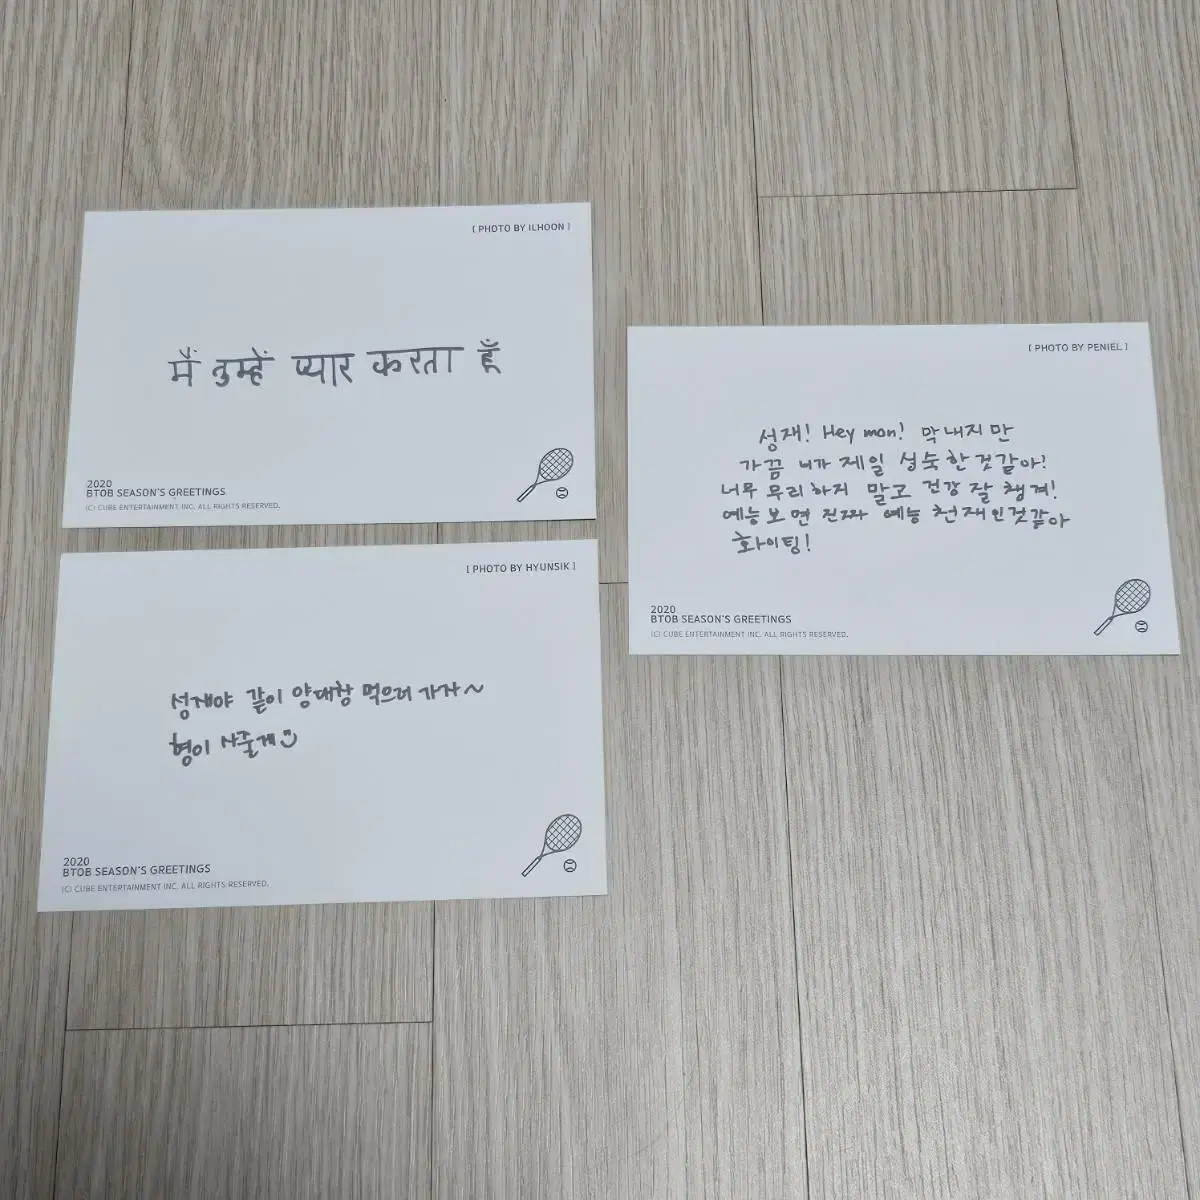 [ PHOTO BY ILHOON ]
मैं तुम्हें प्यार करता हूँ
2020
BTOB SEASON'S GREETINGS
(C) CUBE ENTERTAINMENT INC. ALL RIGHTS RESERVED.
[ PHOTO BY HYUNSIK ]
성재야 같이 양대창 먹으러 가자~
형이 사줄게
2020
BTOB SEASON'S GREETINGS
(C) CUBE ENTERTAINMENT INC. ALL RIGHTS RESERVED.
[ PHOTO BY PENIEL ]
성재! Hey man! 막내지만
가끔 니가 제일 성숙한것같아!
너무 무리하지 말고 건강 잘 챙겨!
예능보면 진짜 예능 천재인것같아
화이팅!
2020
BTOB SEASON'S GREETINGS
(C) CUBE ENTERTAINMENT INC. ALL RIGHTS RESERVED.